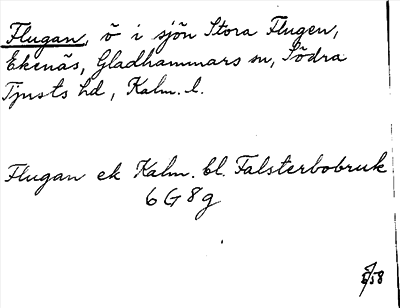 Flugan, ö i sjön Stora Flugen,
Ekenäs, Gladhammars sn, Södra
Tjusts hd, Kalm. l.
Flugan ek Kalm. bl. Falsterbobruk
6 G 8 g
58